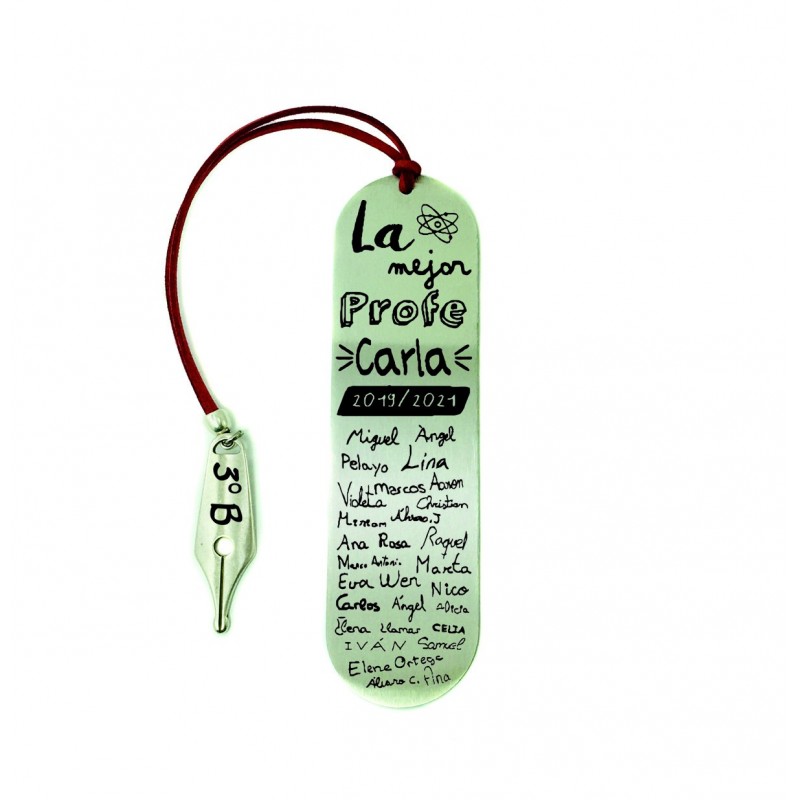 La
mejor
Profe
Carla
2019/2021
Miguel Àngel
Pelayo Lina
Marcos Aaron
Violeta Christian
Miriam Álvaro.J
Ana Rosa Raquel
Marco Antoni. Marta
Eva Wen Nico
Carlos Ángel Alicia
Elena Llamar CELIA
IVÁN Samuel
Elene Ortega
Álvaro C. Pina
3º B